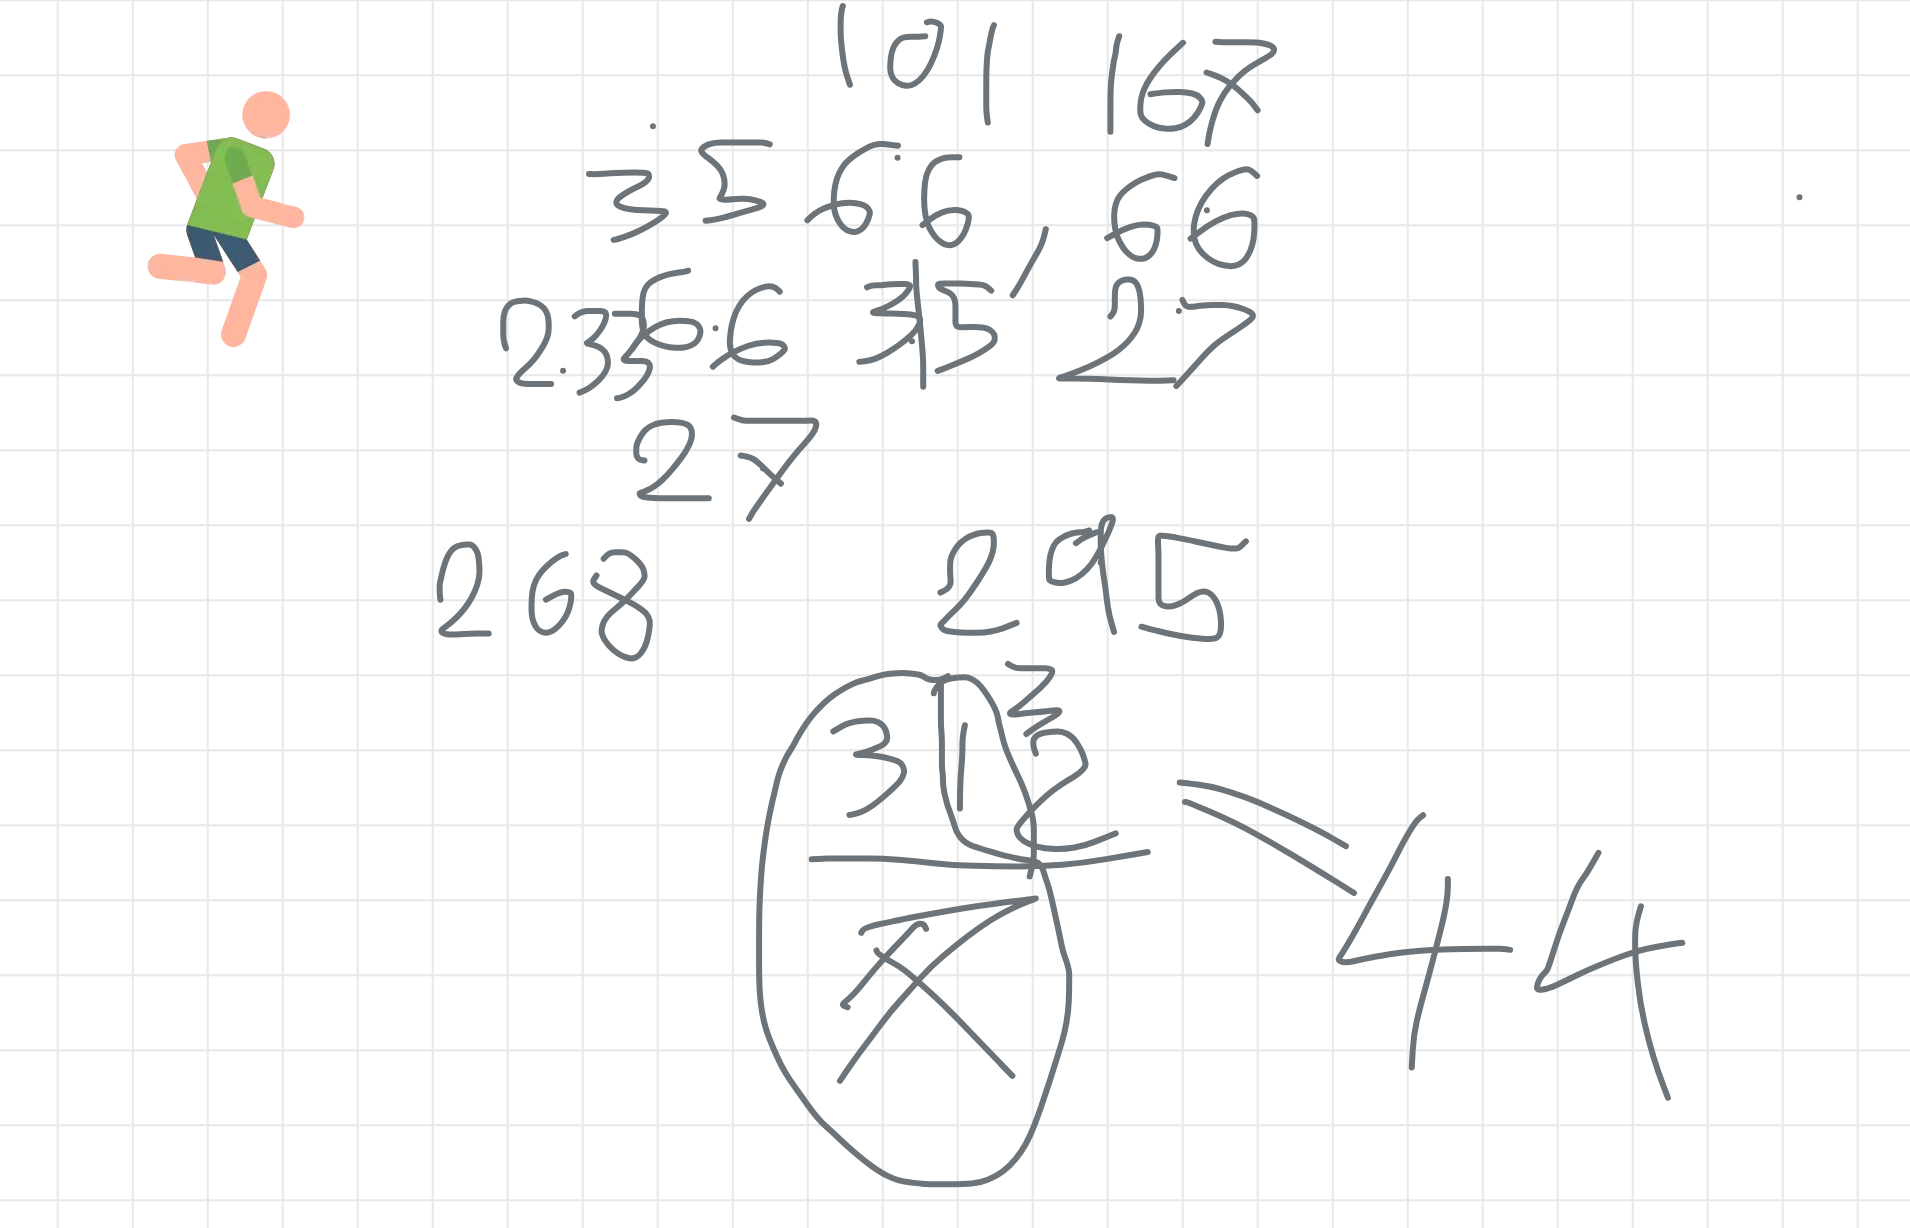 101 167
35 66, 66
2.35 66 35 27
27
268 295
312 3
7
= 44